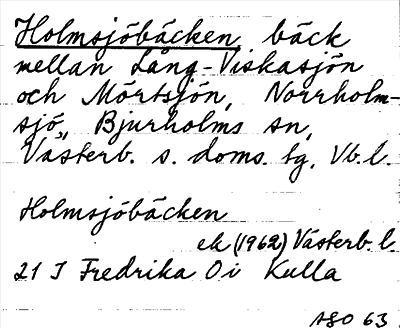 Holmsjöbäcken, bäck
mellan Lång-Viskasjön
och Mörtsjön, Norrholm-
sjö, Bjurholms sn,
Västerb. s. doms. tg, Vb. l.
Holmsjöbäcken
ek (1962) Västerb. l
21 I Fredrika O i Kulla
ASO 63